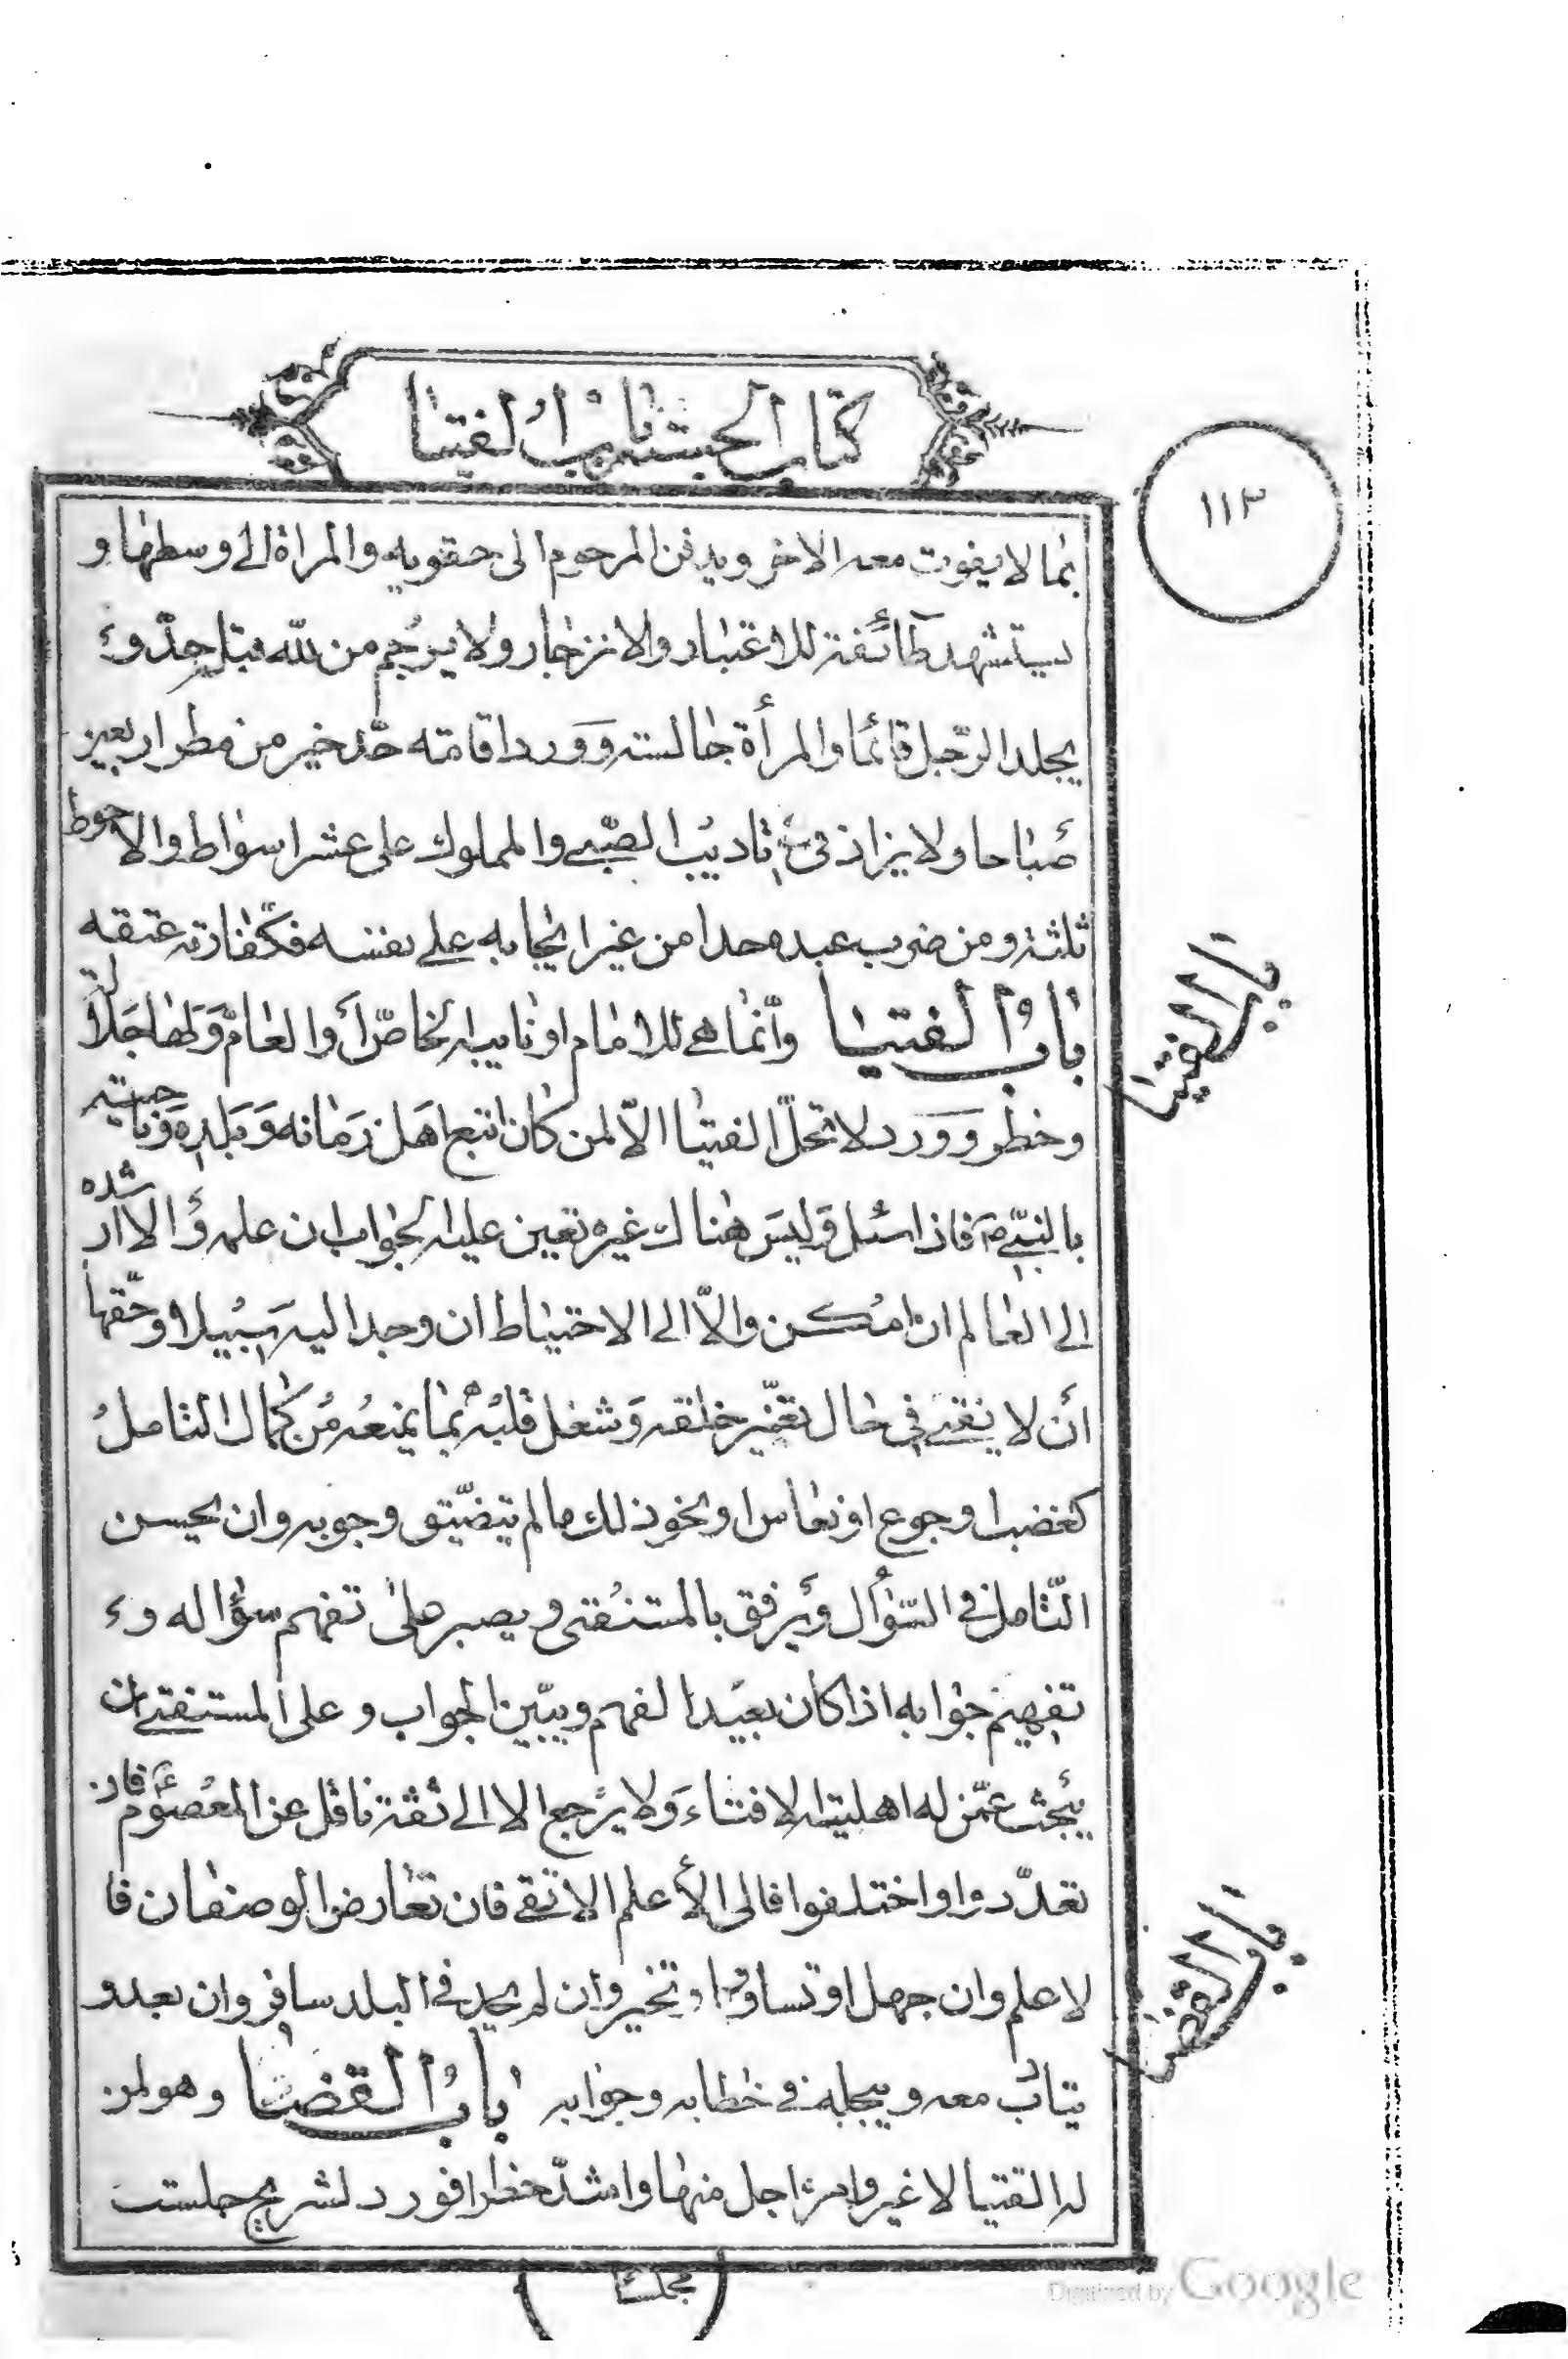 كتاب الحسبة باب الفتيا
١١٣
بما لا يفوت معه الاخر ويدفن المرجوم الى حقويه والمراة الى وسطها و
يستشهد طائفة للاعتبار والانزجار ولا يرجم من لله قبله حدّ و
يجلد الرّجل قائما والمرأة جالسة وورد اقامة حدّ خير من مطر اربعين
صباحا ولا يزاد في تاديب الصّبي والمملوك على عشر اسواط والاحوط
ثلثة ومن ضرب عبده حدا من غير ايجابه على نفسه فكفّارته عتقه
باب الفتيا وانّما هي للامام او نايبه الخاصّ أو العامّ ولها جلالة
وخطر وورد لا تحلّ الفتيا الّا لمن كان اتبع اهل زمانه وبلده وناحيته
بالنبيّ ص فاذا سئل وليس هناك غيره تعين عليه الجواب ان علمه والا ارشده
الى العالم ان امكن والّا الى الاحتياط ان وجد اليه سبيلا وحقّها
أن لا يفتي في حال تغيّر خلقه وشغل قلبه بما يمنعه من كمال التامل
كغضب او جوع او نعاس او نحو ذلك ما لم يتضيّق وجوبه وان يحسن
التّامل في السّؤال ويرفق بالمستفتي ويصبر على تفهم سؤاله و
تفهيم جوابه اذا كان بعيد الفهم ويبيّن الجواب وعلى المستفتي ان
يبحث عمّن له اهلية الافتاء ولا يرجع الا الى ثقة ناقل عن المعصوم ع فان
تعدّد واو اختلفوا فالى الأعلم الاتقى فان تعارض الوصفان فا
لاعلم وان جهل او تساوتا تخير وان لم يجد في البلد سافر وان بعد و
يتادّب معه ويبجله في خطابه وجوابه باب القضا وهو لمن
له الفتيا لا غير وامره اجل منها واشدّ خطرا فورد لشريح جلست
مجلسا
باب الفتيا
باب القضا
Digitized by Google